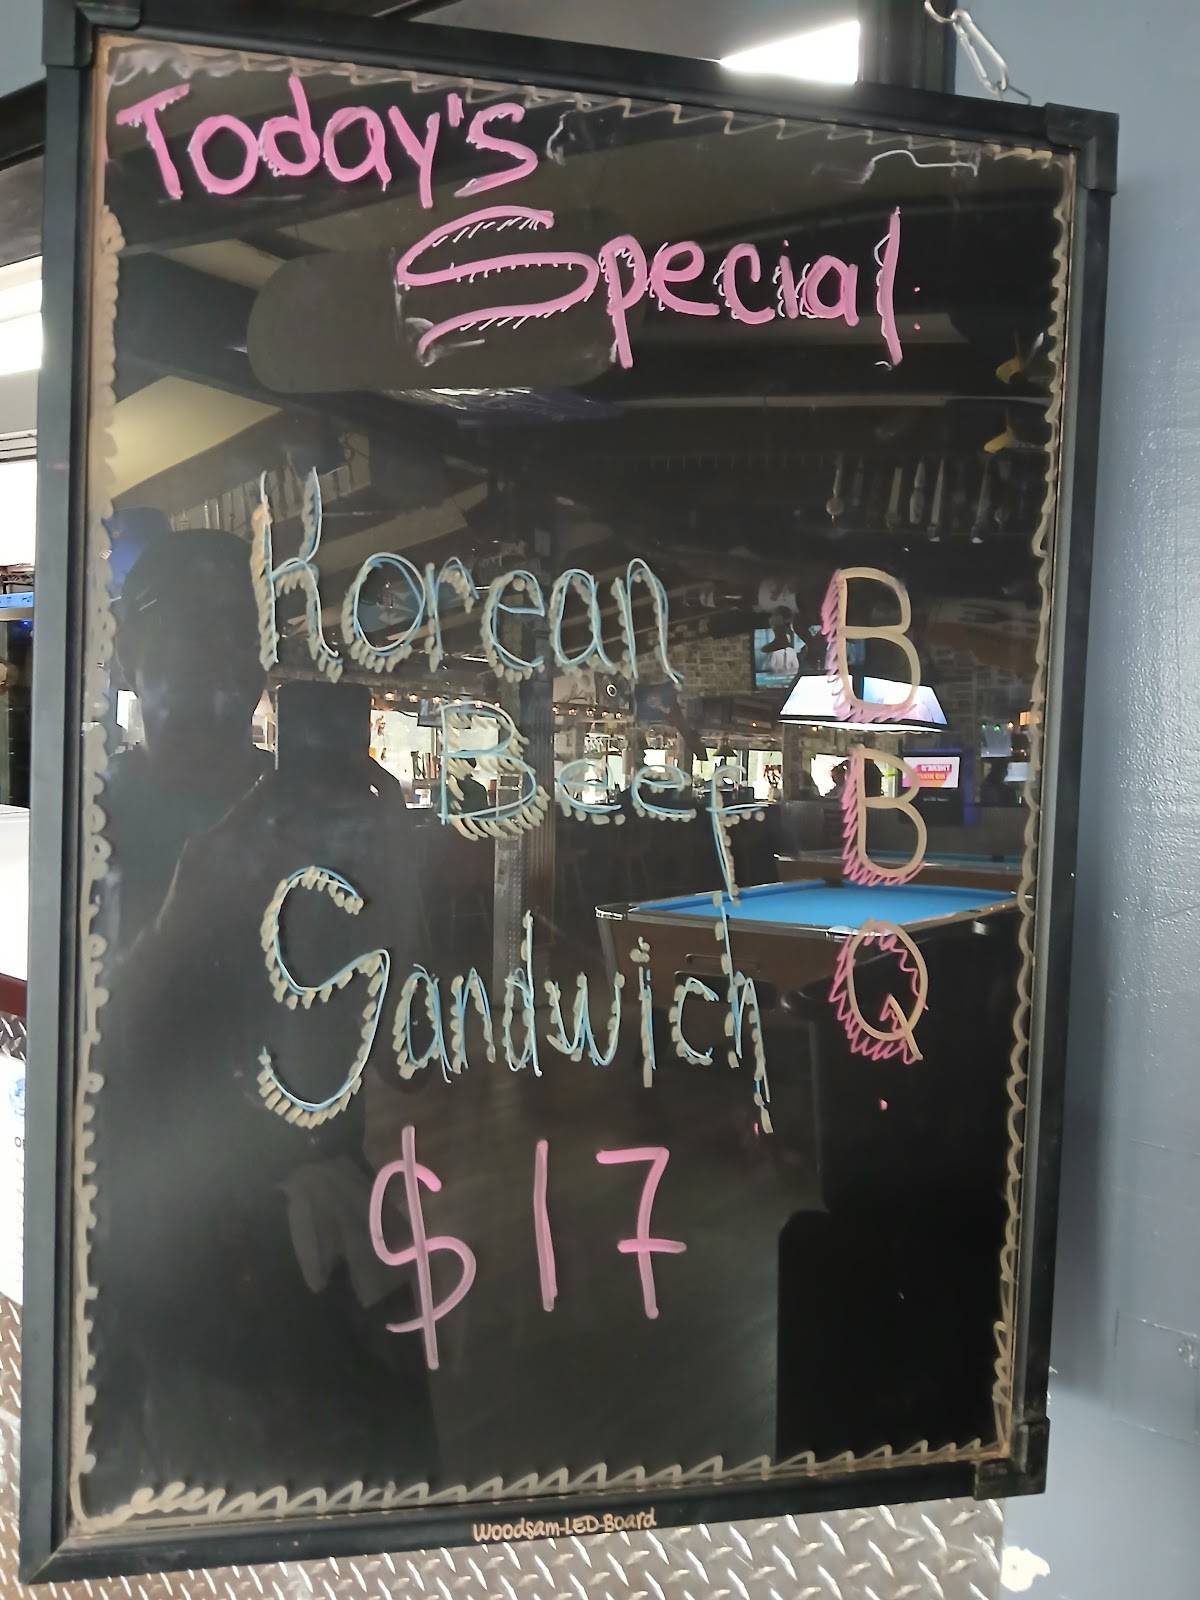 Today's
Special
Korean
Beef
Sandwich
B
B
Q
$17
Woodsam-LED-Board